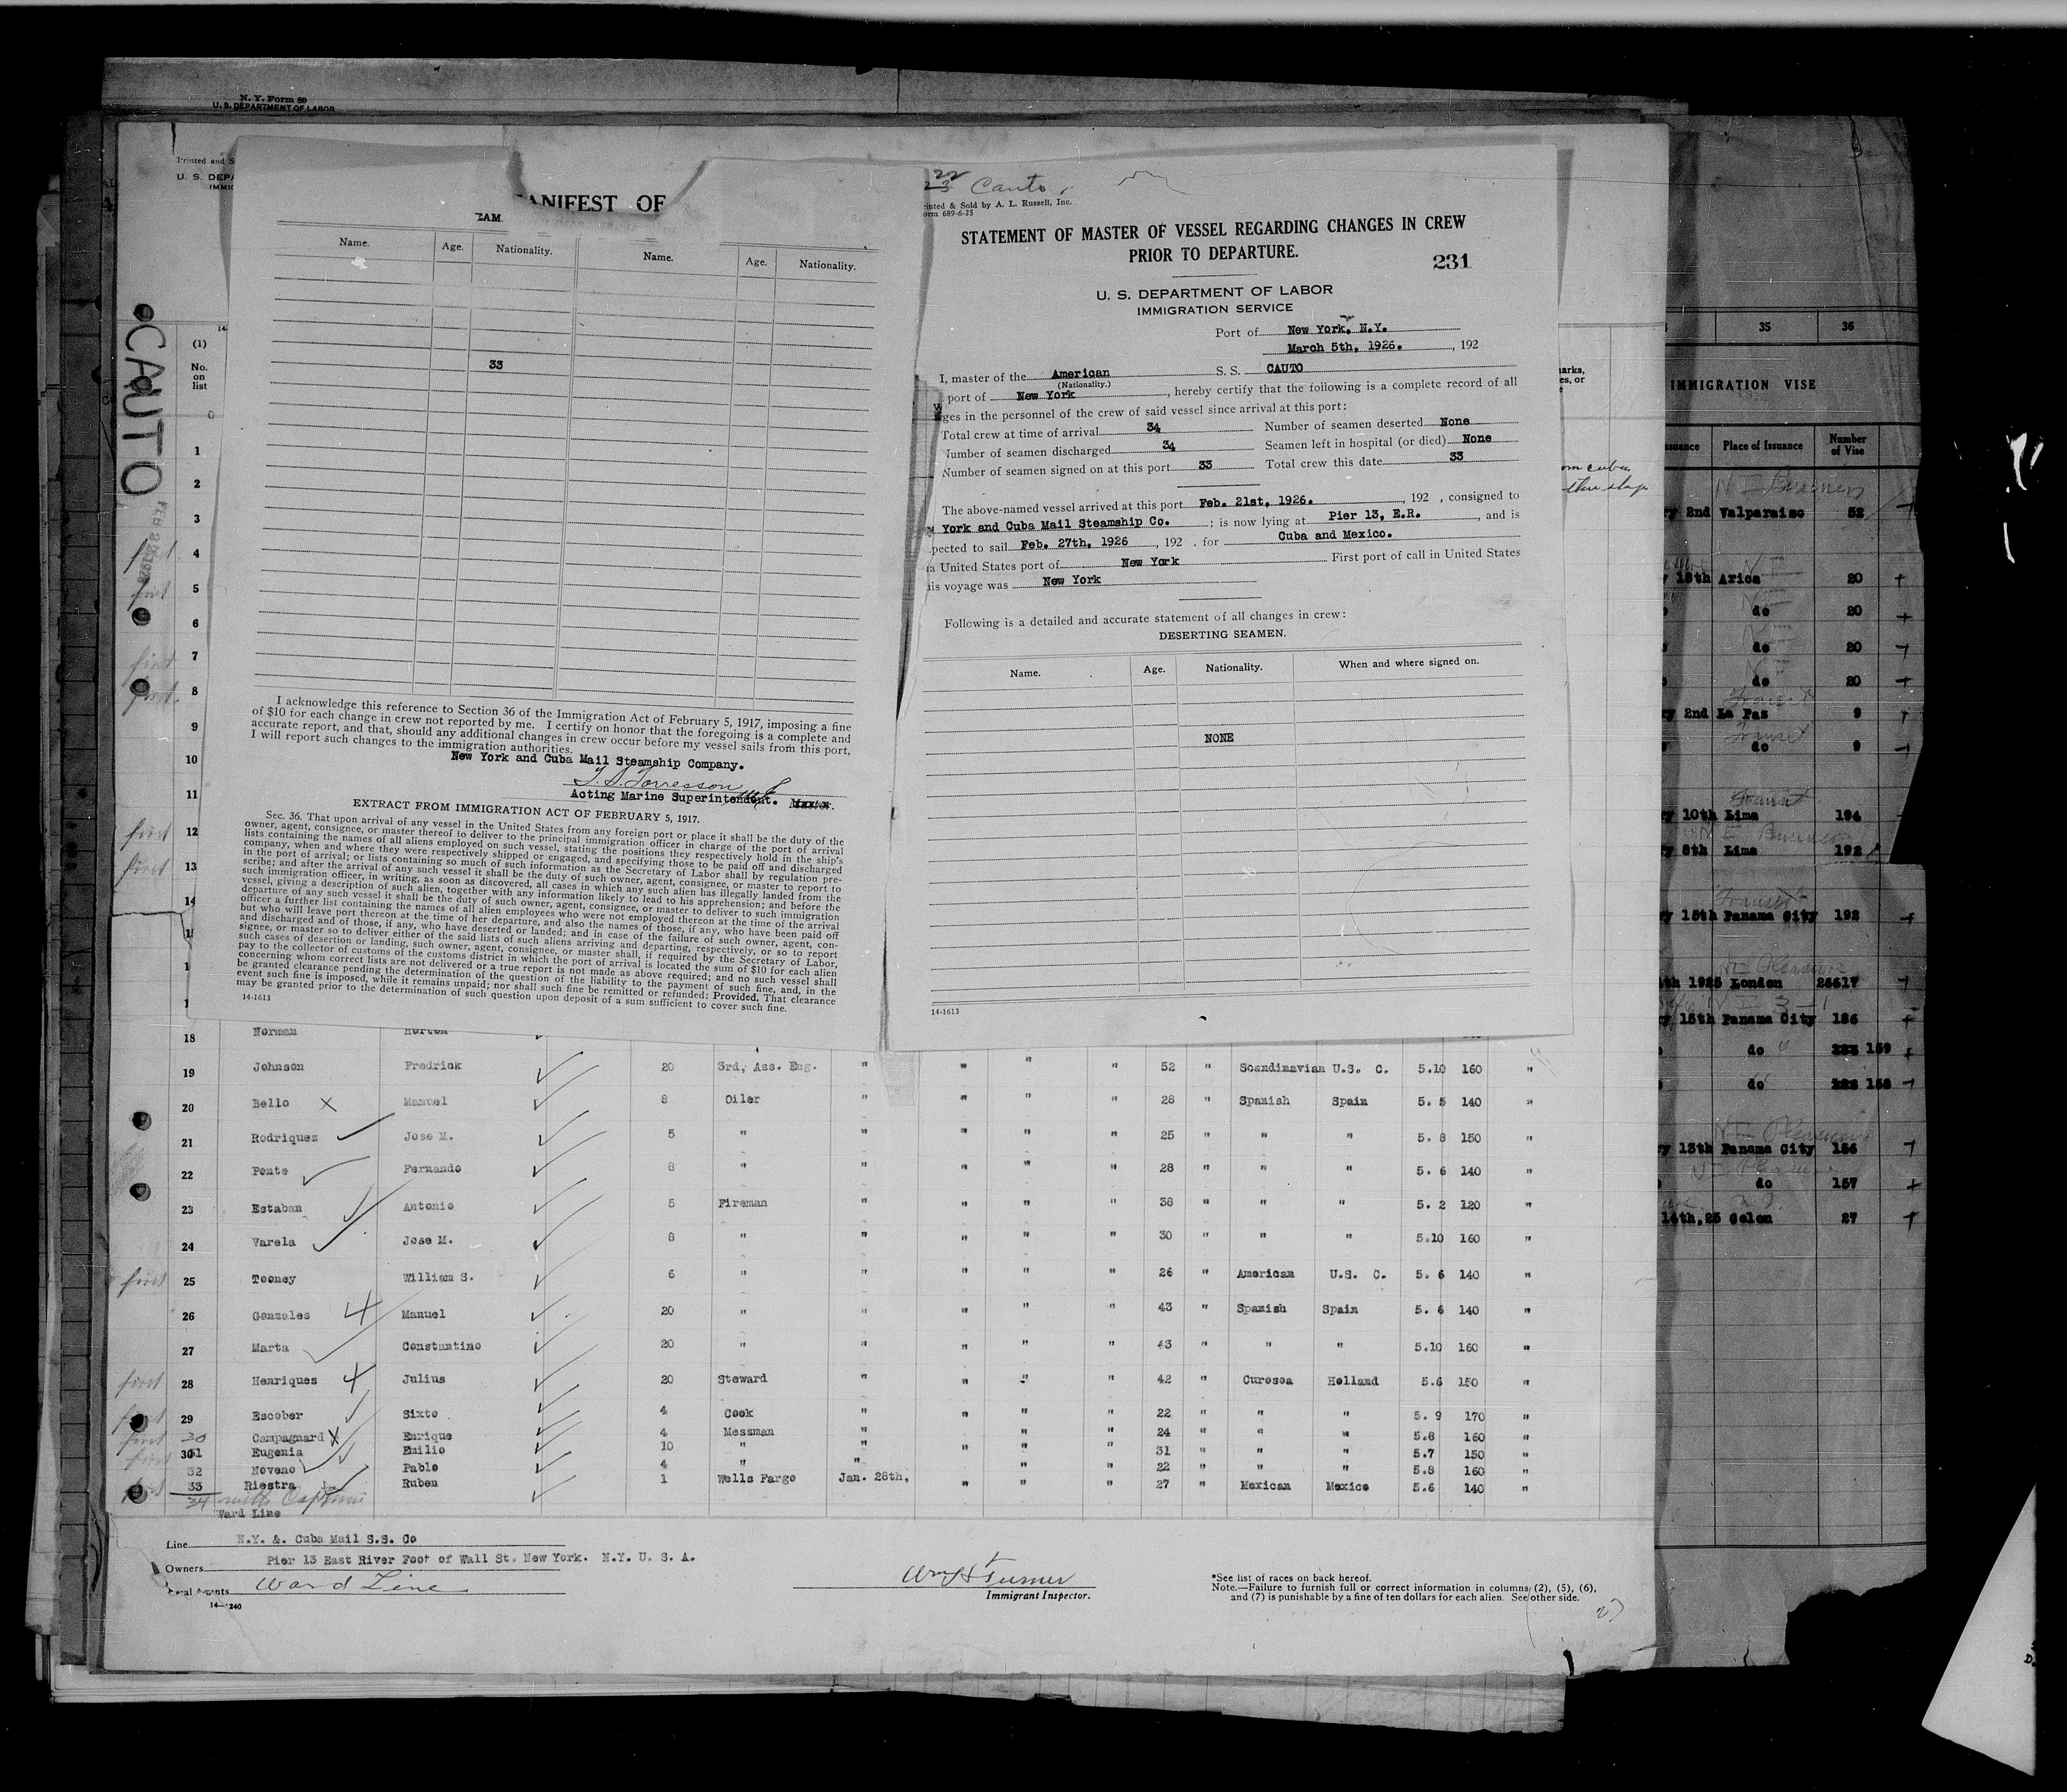 N. Y. Form 89
U. S. DEPARTMENT OF LABOR
Printed and S
U. S. DEPA
IMMIG
CAUTO
(1)
No. on list
ANIFEST OF
Name. Age. Nationality. Name. Age. Nationality.
33
I acknowledge this reference to Section 36 of the Immigration Act of February 5, 1917, imposing a fine
of $10 for each change in crew not reported by me. I certify on honor that the foregoing is a complete and
accurate report, and that, should any additional changes in crew occur before my vessel sails from this port,
I will report such changes to the immigration authorities.
New York and Cuba Mail Steamship Company.
Acting Marine Superintendent. Master.
EXTRACT FROM IMMIGRATION ACT OF FEBRUARY 5, 1917.
Sec. 36. That upon arrival of any vessel in the United States from any foreign port or place it shall be the duty of the
owner, agent, consignee, or master thereof to deliver to the principal immigration officer in charge of the port of arrival
lists containing the names of all aliens employed on such vessel, stating the positions they respectively hold in the ship's
company, when and where they were respectively shipped or engaged, and specifying those to be paid off and discharged
in the port of arrival; or lists containing so much of such information as the Secretary of Labor shall by regulation pre-
scribe; and after the arrival of any such vessel it shall be the duty of such owner, agent, consignee, or master to report to
such immigration officer, in writing, as soon as discovered, all cases in which any such alien has illegally landed from the
vessel, giving a description of such alien, together with any information likely to lead to his apprehension; and before the
departure of any such vessel it shall be the duty of such owner, agent, consignee, or master to deliver to such immigration
officer a further list containing the names of all alien employees who were not employed thereon at the time of the arrival
but who will leave port thereon at the time of her departure, and also the names of those, if any, who have been paid off
and discharged and of those, if any, who have deserted or landed; and in case of the failure of such owner, agent, con-
signee, or master so to deliver either of the said lists of such aliens arriving and departing, respectively, or so to report
such cases of desertion or landing, such owner, agent, consignee, or master shall, if required by the Secretary of Labor,
pay to the collector of customs of the customs district in which the port of arrival is located the sum of $10 for each alien
concerning whom correct lists are not delivered or a true report is not made as above required; and no such vessel shall
be granted clearance pending the determination of the question of the liability to the payment of such fine, and, in the
event such fine is imposed, while it remains unpaid; nor shall such fine be remitted or refunded: Provided, That clearance
may be granted prior to the determination of such question upon deposit of a sum sufficient to cover such fine.
14-1613
Cauto
inted & Sold by A. L. Russell, Inc.
orm 689-6-25
STATEMENT OF MASTER OF VESSEL REGARDING CHANGES IN CREW
PRIOR TO DEPARTURE.
231
U. S. DEPARTMENT OF LABOR
IMMIGRATION SERVICE
Port of New York, N.Y.
March 5th, 1926. , 192
I, master of the American S. S. CAUTO
(Nationality.)
port of New York , hereby certify that the following is a complete record of all
ges in the personnel of the crew of said vessel since arrival at this port:
Total crew at time of arrival 34 Number of seamen deserted None
Number of seamen discharged 34 Seamen left in hospital (or died) None
Number of seamen signed on at this port 33 Total crew this date 33
The above-named vessel arrived at this port Feb. 21st, 1926. , 192 , consigned to
York and Cuba Mail Steamship Co. ; is now lying at Pier 13, E.R. , and is
pected to sail Feb. 27th, 1926 , 192 . for Cuba and Mexico.
a United States port of New York First port of call in United States
is voyage was New York
Following is a detailed and accurate statement of all changes in crew:
DESERTING SEAMEN.
Name. Age. Nationality. When and where signed on.
NONE
14-1613
1
2
3
4
5
6
7
8
9
10
11
first 12
first 13
14
18 Norman Horton
19 Johnson Fredrick 20 3rd, Ass. Eng. " " " " 52 " Scandinavian U.S. C. 5.10 160 "
20 Bello Manuel 8 Oiler " " " " 28 " Spanish Spain 5. 5 140 "
21 Rodriquez Jose M. 5 " " " " " 25 " " " 5. 8 150 "
22 Ponte Fernando 8 " " " " " 28 " " " 5. 6 140 "
23 Estaban Antonio 5 Fireman " " " " 38 " " " 5. 2 120 "
24 Varela Jose M. 8 " " " " " 30 " " " 5.10 160 "
first 25 Tooney William S. 6 " " " " " 26 " American U.S. C. 5. 6 140 "
26 Gonzales Manuel 20 " " " " " 43 " Spanish Spain 5. 6 140 "
27 Marta Constantino 20 " " " " " 43 " " " 5.10 160 "
first 28 Henriques Julius 20 Steward " " " " 42 " Curosoa Holland 5.6 150 "
first 29 Escober Sixto 4 Cook " " " " 22 " " " 5. 9 170 "
first 30 Campagnard Enrique 4 Messman " 24 " " " 5.8 160 "
31 Eugenia Emilio 10 " " " " 31 " " " 5.7 150 "
32 Noveno Pablo 4 " " " " 22 " " " 5.8 160 "
33 Riestra Ruben 1 Wells Fargo Jan. 28th, " " " 27 " Mexican Mexico 5.6 140 "
34 with Captain
Ward Line
Line N.Y. &. Cuba Mail S.S. Co
Owners Pier 13 East River Foot of Wall St. New York. N.Y. U. S. A.
Agents Ward Line
14—1240
Immigrant Inspector.
*See list of races on back hereof.
Note.—Failure to furnish full or correct information in columns (2), (5), (6),
and (7) is punishable by a fine of ten dollars for each alien. See other side.
35 36
IMMIGRATION VISE
ssuance Place of Issuance Number of Vise
2nd Valparaiso 52
18th Arica 20
do 20
do 20
do 20
2nd La Pas 9
do 9
10th Lima 194
8th Lima 192
15th Panama City 192
1925 London 26617
15th Panama City 186
do 159
do 158
13th Panama City 156
do 157
14th, 25 Colon 27